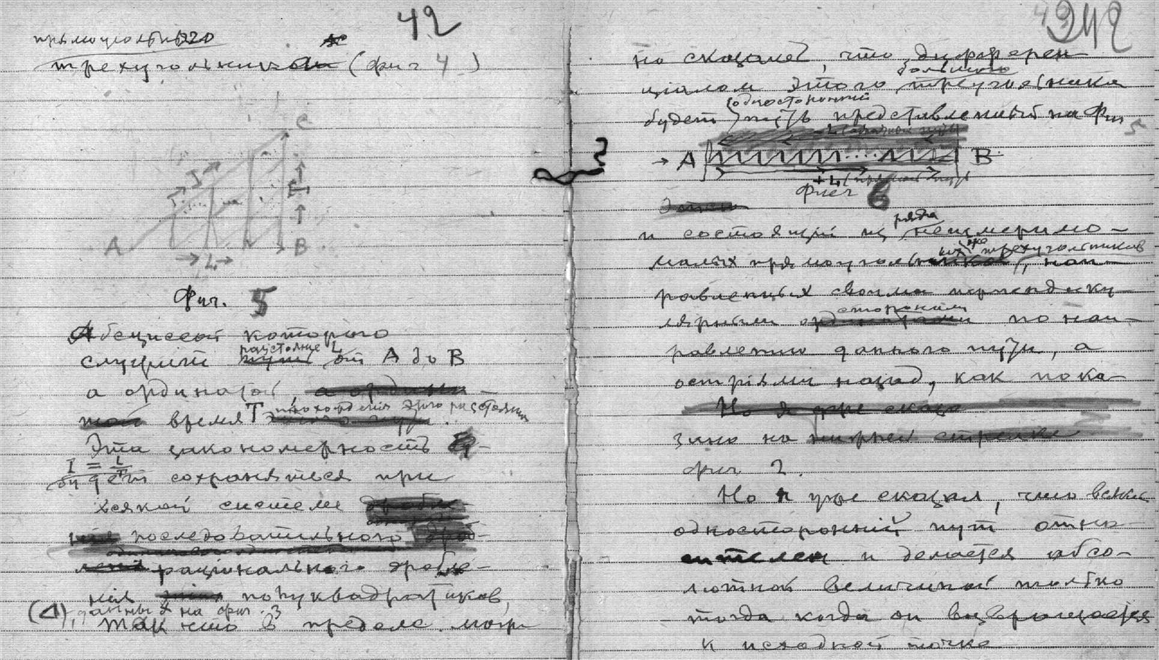 42
прямоугольного
треугольника (фиг 4)
C
J
T
A
L
B
Фиг. 5
Абсциссой которого
служит расстояние L от А до В
а ординатой
время T прохождения этого расстояния.
Эта закономерность
сохраняется при
всякой системе
последовательного
рационального дробле-
ния полуквадратиков,
(Δ), данных на фиг. 3
так что в пределе можн
242
но сказать, что дифферен-
циалом этого большого треугольника
будет односторонний путь представленный на Фиг 5
→ A B
+ L (прямой путь)
Фиг 6
и состоящий из ряда неизмеримо-
малых прямоугольных же треугольников, нап-
равленных своими перпендику-
лярными сторонами по нап-
равлению данного пути, а
остриями назад, как пока-
Но я уже сказа
зано на нижней стрелке
фиг 2.
Но я уже сказал, что всякий
односторонний путь отно-
сителен и делается абсо-
лютной величиной только
тогда когда он возвращается
к исходной точке